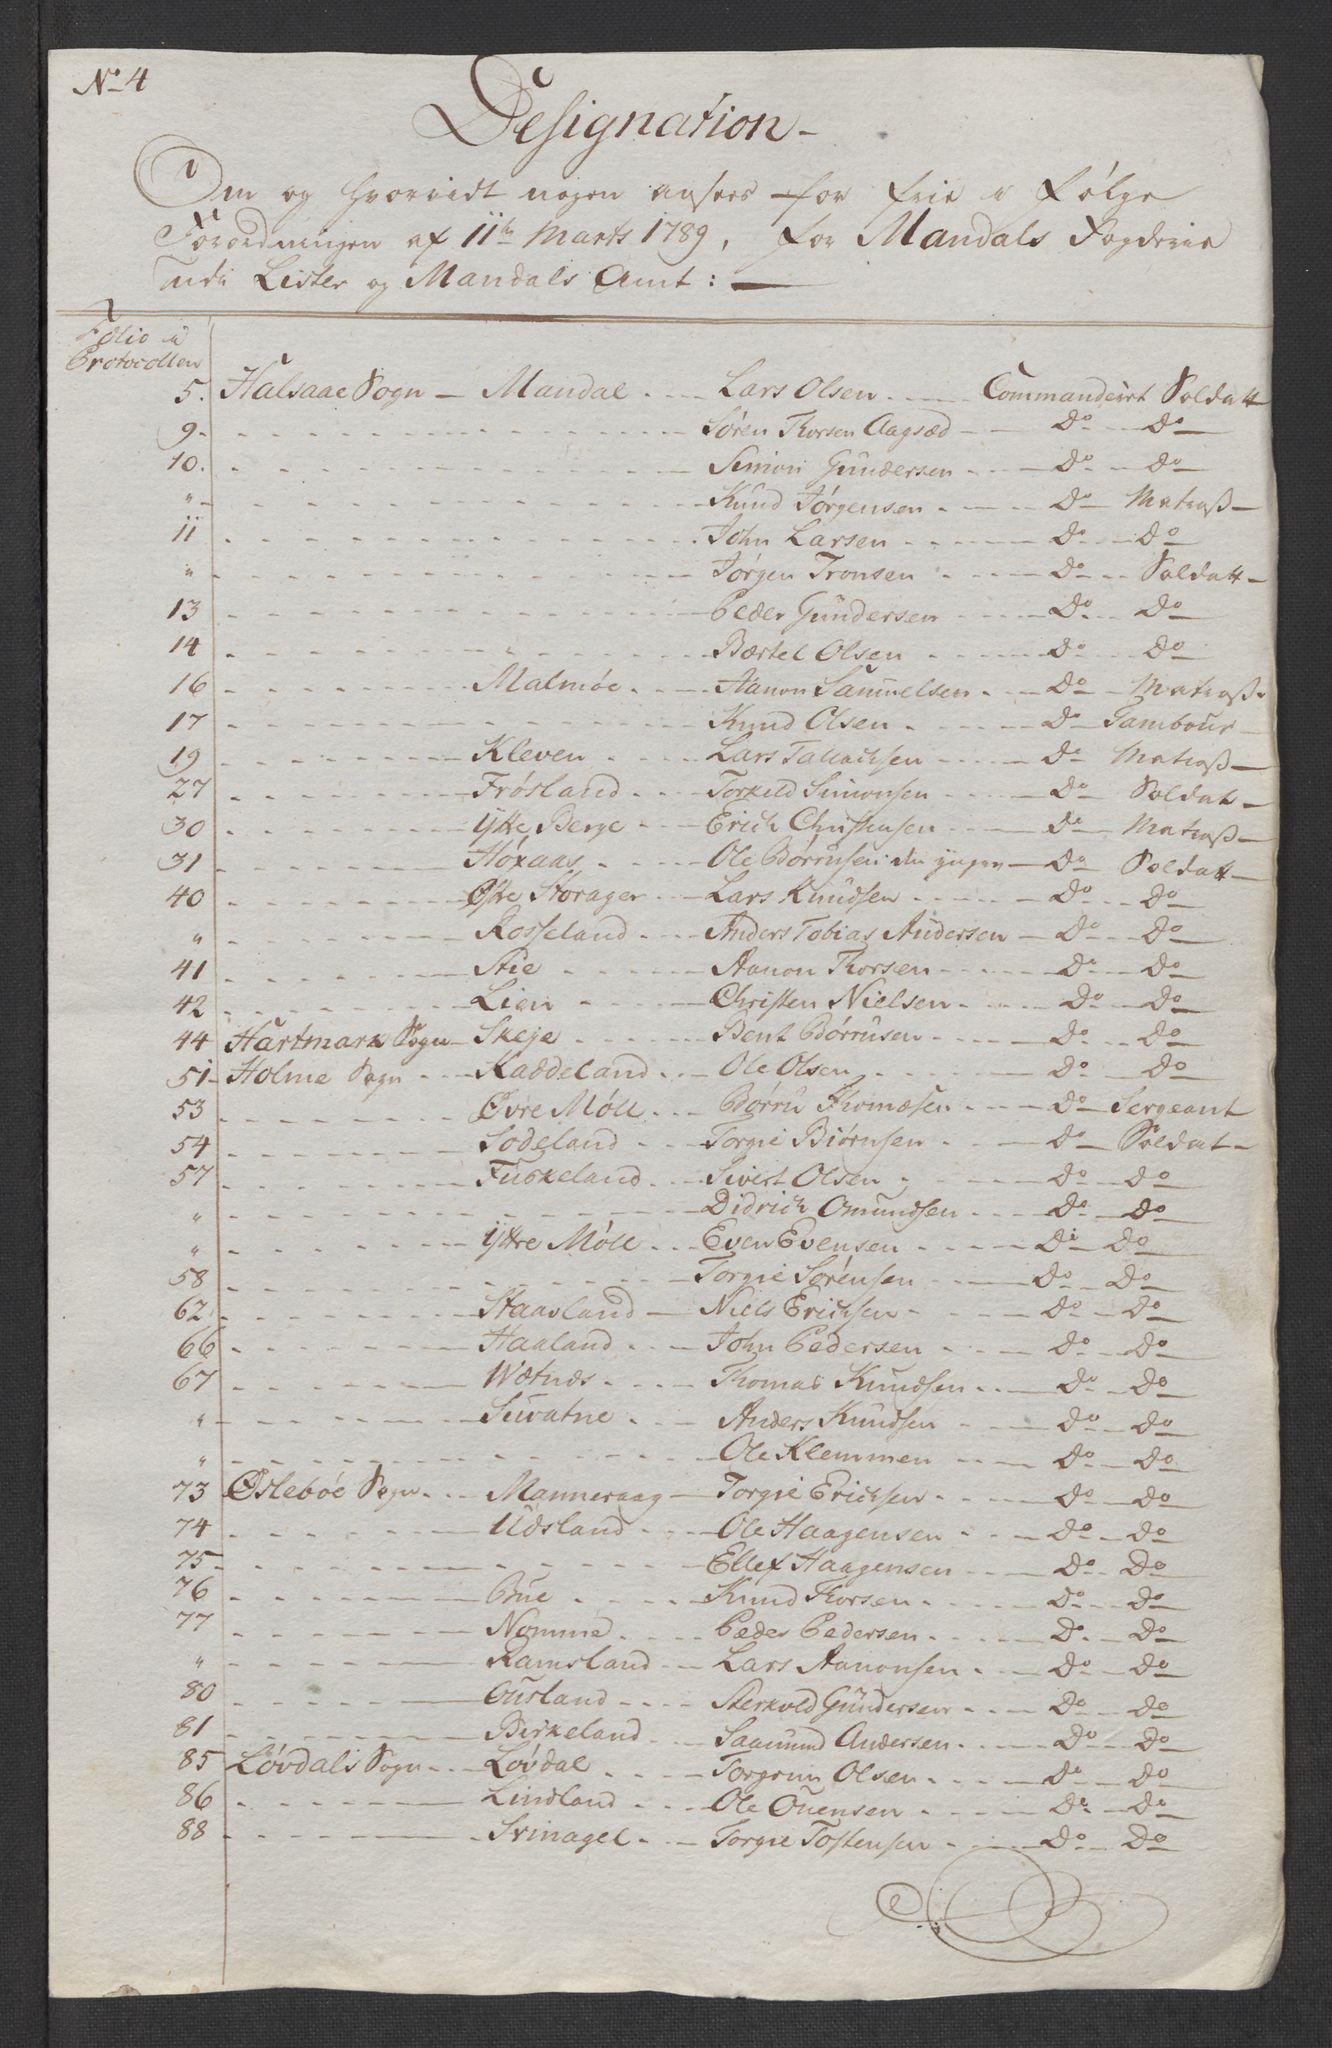 No 4
Designation
Om og hvorvidt nogen ansees for frie i Følge
Forordningen af 11te Marts 1789, for Mandals Fogderie
udi Lister og Mandals Amt:
Folio i
Protocollen
5. Halsaae Sogn Mandal Lars Olsen Commandeirt Soldatt
9 Søren Thorsen Aagsæd Do Do
10. Simon Gundersen Do Do
" Knud Jørgensen Do Matroß
11 John Larsen Do Do
" Jørgen Tronsen Do Soldatt
13 Peder Gündersen Do Do
14 Bærtel Olsen Do Do
16 Malmøe Aanon Samuelsen Do Matroß
17 Knud Olsen Do Tambour
19 Kleven Lars Tallachsen Do Matroß
27 Frøsland Torkeld Simonsen Do Soldat
30 Ytte Berge Erich Christensen Do Matroß
31 Høxaas Ole Børrusen den yngere Do Soldatt
40 Øfte Storager Lars Knudsen Do Do
" Rosseland Anders Tobias Andersen Do Do
41 Stie Aanon Thorsen Do Do
42 Lien Christen Nielsen Do Do
44 Hartmark Sogn Skeje Bent Børrusen Do Do
51 Holme Sogn Kaddeland Ole Olsen Do Do
53 Øvre Möll Børru Thomæsen Do Sergeant
54 Sodeland Torgie Biörnsen Do Soldat
57 Fuskeland Sivert Olsen Do Do
" Didrich Omundsen Do Do
" Yttre Möll Even Evensen Do Do
58 Torgie Sørensen Do Do
62 Staasland Niels Erichsen Do Do
66 Haaland John Pedersen Do Do
67 Wætnes Thomas Knudsen Do Do
" Suvatne Anders Knudsen Do Do
" Ole Klemmen Do Do
73 Øslebøe Sogn Manneraag Torgie Erichsen Do Do
74 Udsland Ole Haagensen Do Do
75 Ellef Haagensen Do Do
76 Bue Knud Thorsen Do Do
77 Nomme Peder Pedersen Do Do
" Ramsland Lars Aanonsen Do Do
80 Ousland Sterkold Gündersen Do Do
81 Birkeland Saamund Andersen Do Do
85 Løvdals Sogn Løvdal Torgrim Olsen Do Do
86 Lindland Ole Ouensen Do Do
88 Svinagel Torgie Tostensen Do Do